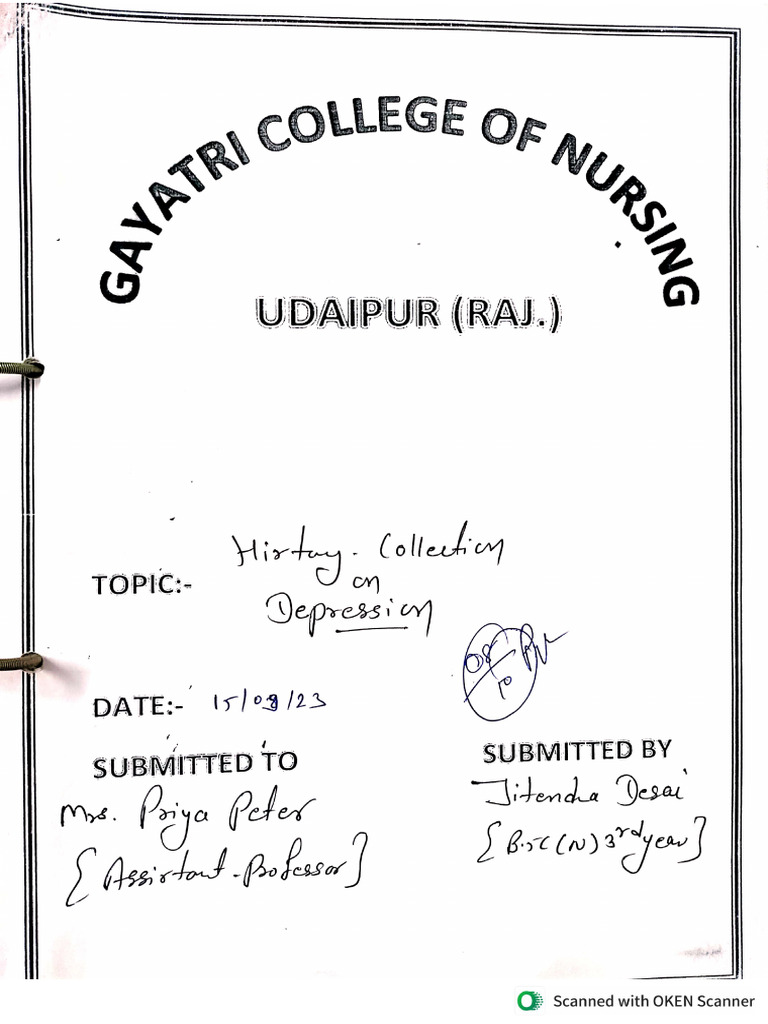 GAYATRI COLLEGE OF NURSING
UDAIPUR (RAJ.)
TOPIC:- History - Collection
on
Depression
DATE:- 15/09/23
SUBMITTED TO
Mrs. Priya Peter
[Assistant - Professor]
SUBMITTED BY
Jitendra Desai
[B.sc (N) 3rd year]
Scanned with OKEN Scanner